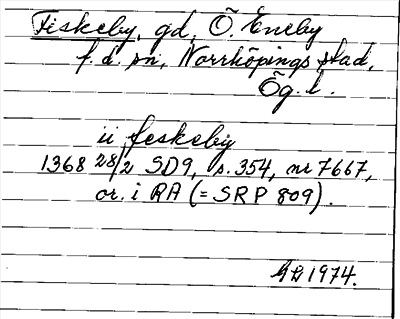 Fiskeby, gd, Ö. Eneby
f.d. sn, Norrköpings stad,
Ög. l.
ii feskeby
1368 28/2 SD9, s. 354, nr 7667,
or. i RA (= SRP 809).
1974.